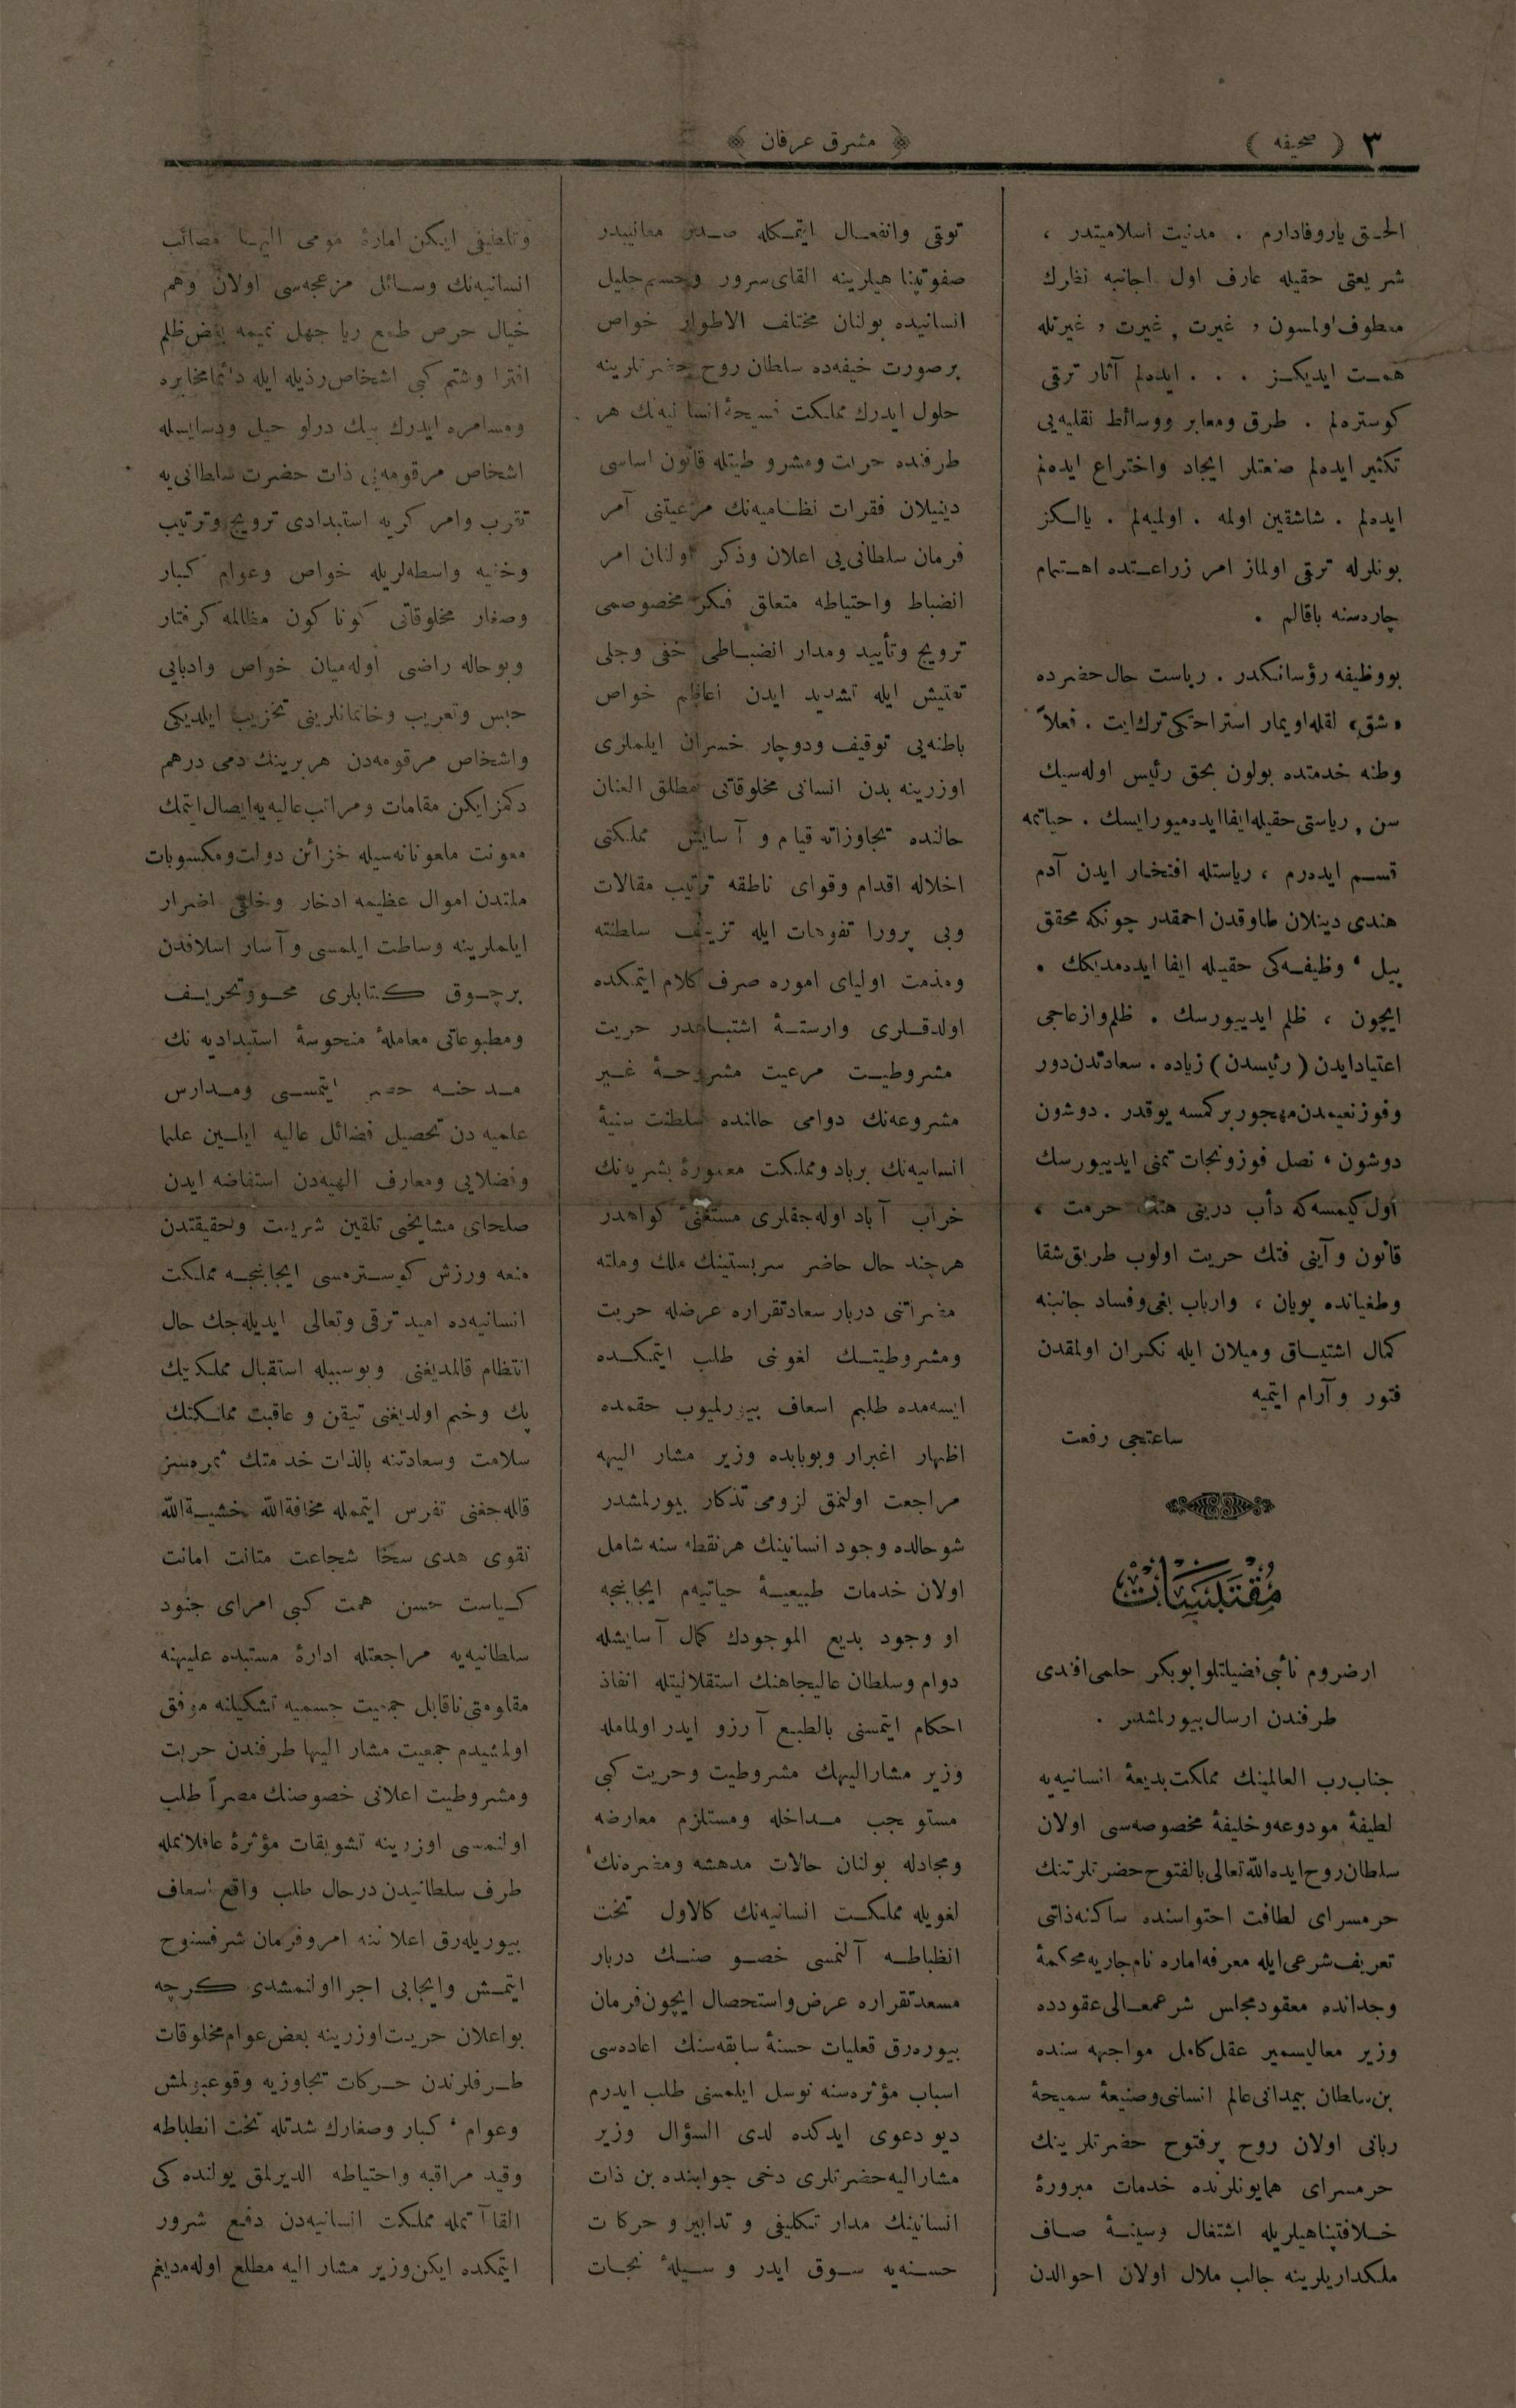 ٣ ( صحيفه )
﴿ مشرق عرفان ﴾
الحق ياروفادارم . مدنيت اسلاميتدر ،
شريعتى حقيله عارف اول اجانبه نظارك
معطوف اولمسون و غيرت , غيرت و غيرتله
همت ايديكز . . . ايدەلم آثار ترقى
كوسترەلم . طرق ومعابر ووسائط نقليەيى
تكثير ايدەلم صنعتلر ايجاد واختراع ايدەلم
ايدەلم . شاشقين اولمه . اولميەلم . يالكز
بونلرله ترقى اولماز امر زراعتده اهتمام
چاره‌سنه باقالم .
بووظيفه رؤسانكدر . رياست حال حضرده
«شق» لقله اويمار استراحتكى ترك ايت . فعلاً
وطنه خدمتده بولون بحق رئيس اوله‌سيك
سن , رياستى حقيله ايفا ايده‌ميورايسك . حياتمه
قسم ايدەرم ، رياستله افتخار ايدن آدم
هندى دينلان طاوقدن احمقدر چونكه محقق
بيل ، وظيفه‌كى حقيله ايفا ايده‌مديكك .
ايچون ، ظلم ايدييورسك . ظلم وازعاجى
اعتيادايدن ( رئيسدن ) زياده . سعادتدن دور
وفوز نعيمدن مهجور بركمسه يوقدر . دوشون
دوشون ، نصل فوزونجات تمنى ايدييورسك
اول كيمسه‌كه دأب دريى هتك حرمت ،
قانون و آيينى فتك حريت اولوب طريق شقا
وطغيانده پويان ، وارباب بغى وفساد جانبنه
كمال اشتياق وميلان ايله نكران اولمقدن
فتور و آرام ايتميه
ساعتجى رفعت
مُقْتَبَسَاتْ
ارضروم نائبى فضيلتلو ابوبكر حلمى افندى
طرفندن ارسال بيورلمشدر .
جناب رب العالمينك مملكت بديعۀ انسانيه‌يه
لطيفۀ مودوعه وخليفۀ مخصوصه‌سى اولان
سلطان روح ايده الله تعالى بالفتوح حضرتلرتنك
حرمسراى لطافت احتواسنده ساكنه ذاتى
تعريف شرعى ايله معرفه اماره نام جاريه محكمۀ
وجدانده معقود مجلس شرعمعالى عقودده
وزير معاليسمير عقل كامل مواجهه سنده
بن سلطان بيمدانى عالم انسانى وصنيعۀ سميحۀ
ربانى اولان روح پرفتوح حضرتلرينك
حرمسراى همايونلرنده خدمات مبرورۀ
خلافتپناهيلريله اشتغال وسينۀ صاف
ملكداريلرينه جالب ملال اولان احوالدن
توقى وانفعال ايتمكله صدر معانيبدر
صفوتپنا هيلرينه القاى سرور وجسم جليل
انسانيده بولنان مختلف الاطوار خواص
برصورت خيفه‌ده سلطان روح حضرتلرينه
حلول ايدرك مملكت فسيحۀ انسانيه‌نك هر
طرفنده حرات ومشرو طيتله قانون اساسى
دينيلان فقرات نظاميه‌نك مرعيتنى آمر
فرمان سلطانى‌يى اعلان وذكر اولنان امر
انضباط واحتياطه متعلق فكر مخصوصمى
ترويج وتأييد ومدار انضباطى خفى وجلى
تفتيش ايله تشديد ايدن اعاظم خواص
باطنه‌يى توقيف ودوچار خسران ايلملرى
اوزرينه بدن انسانى مخلوقاتى مطلق العنان
حالنده تجاوزاته قيام و آسايش مملكتى
اخلاله اقدام وقواى ناطقه ترتيب مقالات
وبى پروا تفوهات ايله تزييف سلطنته
ومذمت اولياى اموره صرف كلام ايتمكده
اولدقلرى وارستۀ اشتباهدر حريت
مشروطيت مرعيت مشروحۀ غير
مشروعه‌نك دوامى حالنده سلطنت سنيۀ
انسانيه‌نك برباد ومملكت معمورۀ بشريه‌نك
خراب آباد اوله‌جقلرى مستغنئ كواهدر
هرچند حال حاضر سربستينك ملك وملته
مضراتنى دربار سعادتقراره عرضله حريت
ومشروطيتك لغونى طلب ايتمكده
ايسه‌مده طلبم اسعاف بيورلميوب حقمده
اظهار اغبرار وبوبابده وزير مشار اليهه
مراجعت اولنمق لزومى تذكار بيورلمشدر
شو حالده وجود انسانينك هر نقطه سنه شامل
اولان خدمات طبيعيۀ حياتيه‌م ايجابنجه
او وجود بديع الموجودك كمال آسايشله
دوام وسلطان عاليجاهنك استقلاليتله انفاذ
احكام ايتمسنى بالطبع آرزو ايدر اولمامله
وزير مشاراليهك مشروطيت وحريت كبى
مستوجب مداخله ومستلزم معارضه
ومجادله بولنان حالات مدهشه ومضره‌نك
لغويله مملكت انسانيه‌نك كالاول تحت
انظباطه آلنمسى خصو صنك دربار
مسعدتقراره عرض واستحصال ايچون فرمان
بيوره‌رق قعليات حسنۀ سابقه‌سنك اعاده‌سى
اسباب مؤثره‌سنه توسل ايلمسنى طلب ايدرم
ديو دعوى ايدكده لدى السؤال وزير
مشاراليه حضرتلرى دخى جوابنده بن ذات
انسانينك مدار تكليفى و تدابير و حركات
حسنه‌يه سوق ايدر وسيلۀ نجات
وتلطيفى ايكن امارۀ مومى اليها مصائب
انسانيه‌نك وسائل مزعجه‌سى اولان وهم
خيال حرص طمع ريا جهل نميمه بغض ظلم
افترا وشتم كبى اشخاص رذيله ايله دائما مخابره
ومسامره ايدرك بيك درلو حيل ودسايسله
اشخاص مرقومه‌يى ذات حضرت سلطانى‌يه
تقرب وامر كريه استبدادى ترويج وترتيب
وخفيه واسطه‌لريله خواص وعوام كبار
وصغار مخلوقاتى كونا كون مظالمه كرفتار
وبوحاله راضى اوله‌ميان خواص وادبايى
حبس وتعريب وخانمانلرينى تخزيب ايلديكى
واشخاص مرقومه‌دن هربرينك دمى درهم
دكمز ايكن مقامات ومراتب عاليه‌يه ايصال ايتمك
معونت ملعونانه‌سيله خزائن دولت ومكسوبات
ملتدن اموال عظيمه ادخار وخلقى اضرار
ايلملرينه وساطت ايلمسى وآسار اسلافدن
برچوق كتابلرى محووتحريف
ومطبوعاتى معاملۀ منحوسۀ استبداديه نك
ايتمسى ومدارس
علميه دن تحصيل فضائل عاليه ايلين علما
وفضلايى ومعارف الهيه‌دن استفاضه ايدن
صلحاى مشايخى تلقين شريعت وحقيقتدن
منعه ورزش كوسترمسى ايجابنجه مملكت
انسانيه‌ده اميد ترقى وتعالى ايديله‌جك حال
انتظام قالمديغنى وبوسببله استقبال مملكتك
پك وخيم اولديغنى تيقن و عاقبت مملكتك
سلامت وسعادتنه بالذات خدمتك ثمره‌سز
قاله‌جغنى تفرس ايتممله مخافة الله خشية الله
تقوى هدى سخا شجاعت متانت امانت
كياست حسن همت كبى امراى جنود
سلطانيه‌يه مراجعتله ادارۀ مستبده عليهنه
مقاومتى ناقابل جمعيت جسميه تشكيلنه موفق
اولمشيدم جمعيت مشار اليها طرفندن حريت
ومشروطيت اعلانى خصوصنك مصراً طلب
اولنمسى اوزرينه تشويقات مؤثرۀ عاقلانمله
طرف سلطانيدن درحال طلب واقع اسعاف
بيوريله‌رق اعلاننه امروفرمان شرفسنوح
ايتمش وايجابى اجرا اولنمشدى كرچه
بواعلان حريت اوزرينه بعض عوام مخلوقات
طرفلرندن حركات تجاوزيه وقوعبولمش
وعوام ، كبار وصغارك شدتله تحت انطباطه
وقيد مراقبه واحتياطه الديرلمق يولنده كى
القاآتمله مملكت انسانيه‌دن دفع شرور
ايتمكده ايكن وزير مشار اليه مطلع اوله‌مديغم